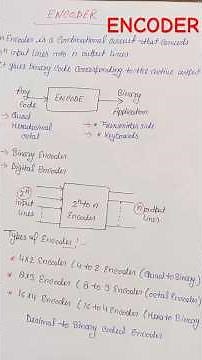 ENCODER
ENCODER
Encoder is a Combinational circuit that converts
2ⁿ input lines into n output lines
It gives binary code corresponding to the active output
Any Code
ENCODE
Binary
Application
→ Quad
Hexadecimal
octal
→ * Transmitter side
→ * Keyboards
→ Binary Encoder
→ Digital Encoder
2ⁿ
input
lines
2ⁿ to n
Encoder
n output
lines
Types of Encoder :-
* 4x2 Encoder (4 to 2 Encoder (Quad to Binary)
* 8x3 Encoder (8 to 3 Encoder (octal Encoder)
* 16x4 Encoder (16 to 4 Encoder (Hexa to Binary)
Decimal to Binary Coded Encoder